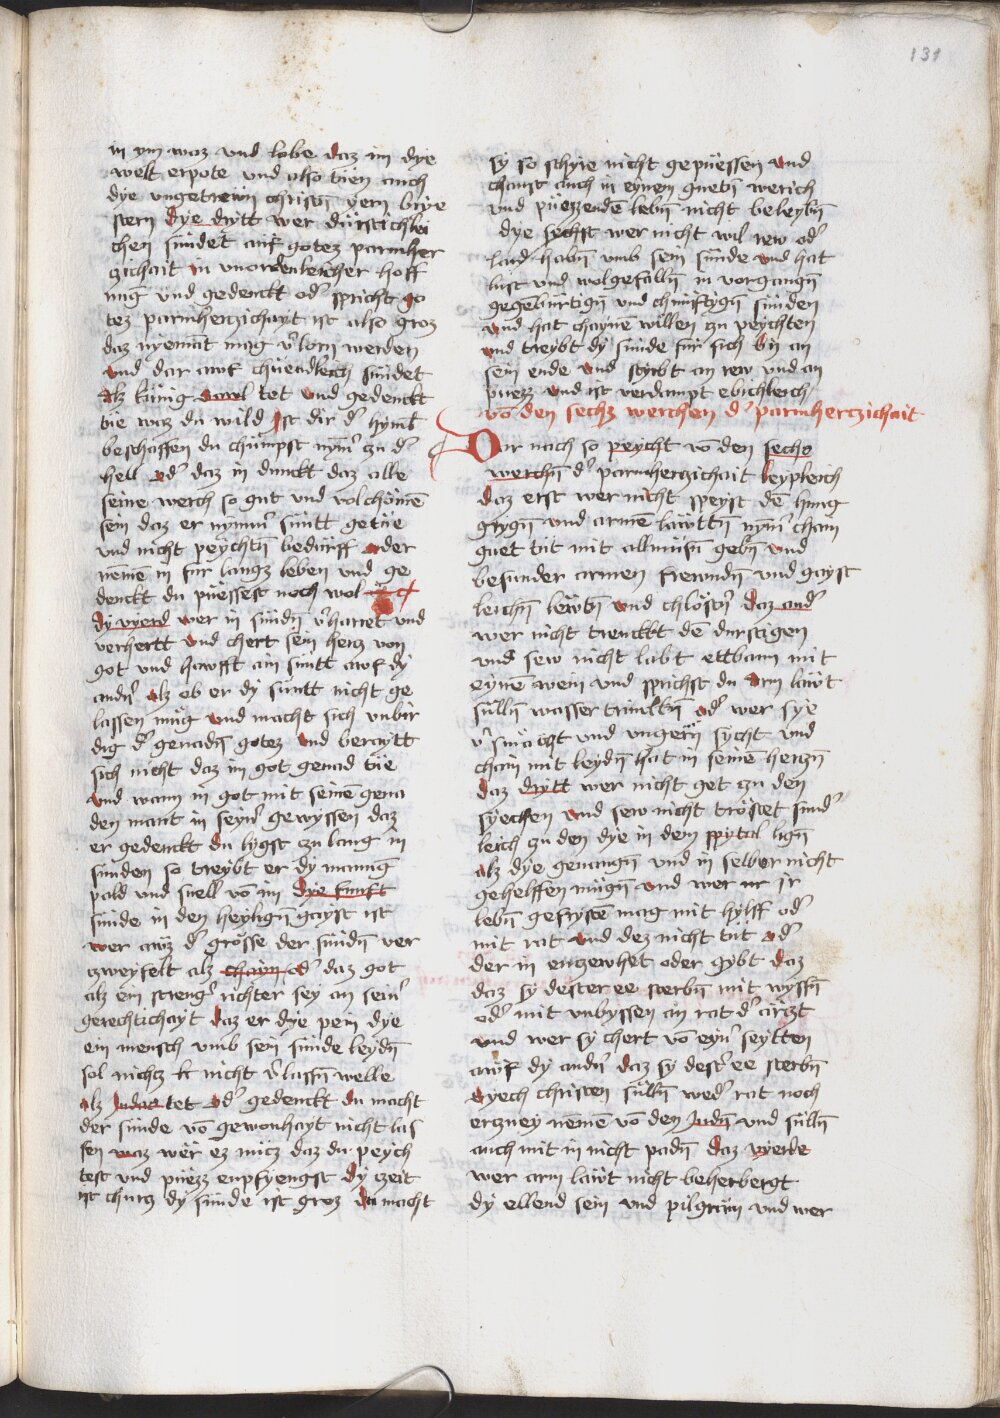 131
in ym waz vnd lobe daz im dye
welt erpote vnd also tuen auch
dye vngetrewn christn̄ yern
stern dye drytt wer dürstichlei
chen sündet auf gotez parmher
czichait in vnordenleicher hoff
nūg vnd gedenckt od' spricht go
tez parmherczichayt ist also groz
daz nyemāt mag v'lorn werden
vnd dar awf chüendleich sündet
alz künig sawl tet vnd gedenckt
tüe waz du wild ist dir d' hyml
beschaffen du chümpst nym̄' zu d'
hell od' daz in dunckt daz alle
seine werch so gut vnd volchömē
sein daz er nymm' süntt getüe
vnd nicht peychtn̄ bedürff oder
nēmē in für langz leben vnd ge
denckt du püessest noch wol
dy vyerd wer in sündn̄ v'harret vnd
verhertt vnd chert sein hercz von
got vnd hawfft ain süntt awf dy
andn̄' alz ob er dy süntt nicht ge
lassen müg vnd macht sich vnbir
dig d' genadn̄ gotez vnd beraytt
sich nicht daz im got genad tüe
vnd wann in got mit seinē gena
den mant in seyn' gewyssen daz
er gedenckt du lygst zu lang in
sünden so treybt er dy manūg
pald vnd snell vō im dye fünft
sünde in den heylign̄ gayst ist
wer awz d' grösse der sündn̄ ver
czweyfelt alz chayn od' daz got
alz ein streng' richter sey an sein'
gerechtichayt daz er dye pein dye
ein mensch vmb sein sünde leydn̄
sol nichcz nicht v'lassn̄ welle
alz Judas tet od' gedenckt du macht
der sünde vō gewonhayt nicht las
sen waz wër ez nücz daz du peych
test vnd puezz enpfyengst dy czeit
ist churcz dy sünde ist groz du macht
sy so schyre nicht gepüessen vnd
chanst auch in eynem guetn̄ werich
vnd püezzendē lebn̄ nicht beleybn̄
dye sechst wer nicht wil rew od'
laid habn̄ vmb sein sünde vnd hat
lust vnd wolgefalln̄ in vorgangn̄
gegēbürtign̄ vnd chünftign̄ sünden
vnd hat chaynē willen zu peychten
vnd treybt dy sünde für sich hin an
sein ende vnd styrbt an rew vnd an
puezz vnd ist verdampt ebichleich
vō den sechz werchen d' parmherczichait
Dar nach so peycht vō den sechs
werchn̄ d' parmherczichait leypleich
daz erst wer nicht speyst dē hung
grygn̄ vnd armē läwttn̄ nym̄' chain
guet tüt mit allmüsn̄ gebn̄ vnd
besunder armen frewndn̄ vnd gayst
leichn̄ lewtn̄ vnd chlöst'n̄ daz and'
wer nicht trenckht dē durstigen
vnd sew nicht labt ettbann mit
eynē wein vnd sprichst du arm läwt
sülln̄ wasser trinckn̄ od' wer sye
v'smächt vnd vngern sycht vnd
chain mit leydn̄ hat in seinē herczn̄
daz drytt wer nicht get zu den
syechen vnd sew nicht tröstet sund'
leich zu den dye in dem spytal lign̄
alz dye genangn̄ vnd in selber nicht
gehelffen mügn̄ vnd wer ir
lebn̄ gefrystē mag mit hylff od'
mit rat vnd dez nicht tüt od'
der in enczewhet oder gybt daz
daz sy dester ee sterbn̄ mit wyssn̄
od' mit vnbyssen an rat d' ärczt
vnd wer sy chert vō eyn' seytten
awf dy andn̄' daz sy dest' ee sterbn̄
syech christen sülln̄ wed' rat noch
erczney nēmē vō den Judn̄ vnd sülln̄
auch mit in nicht padn̄ daz vyerde
wer arm läwt nicht beherbergt
dy ellend sein vnd pilgrim vnd wer